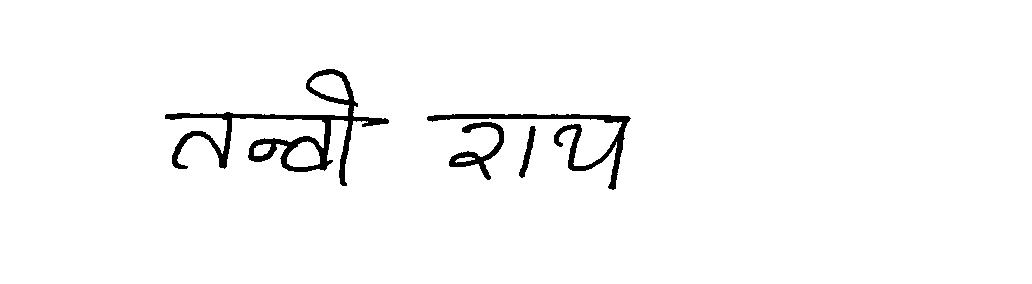 तन्वी राय